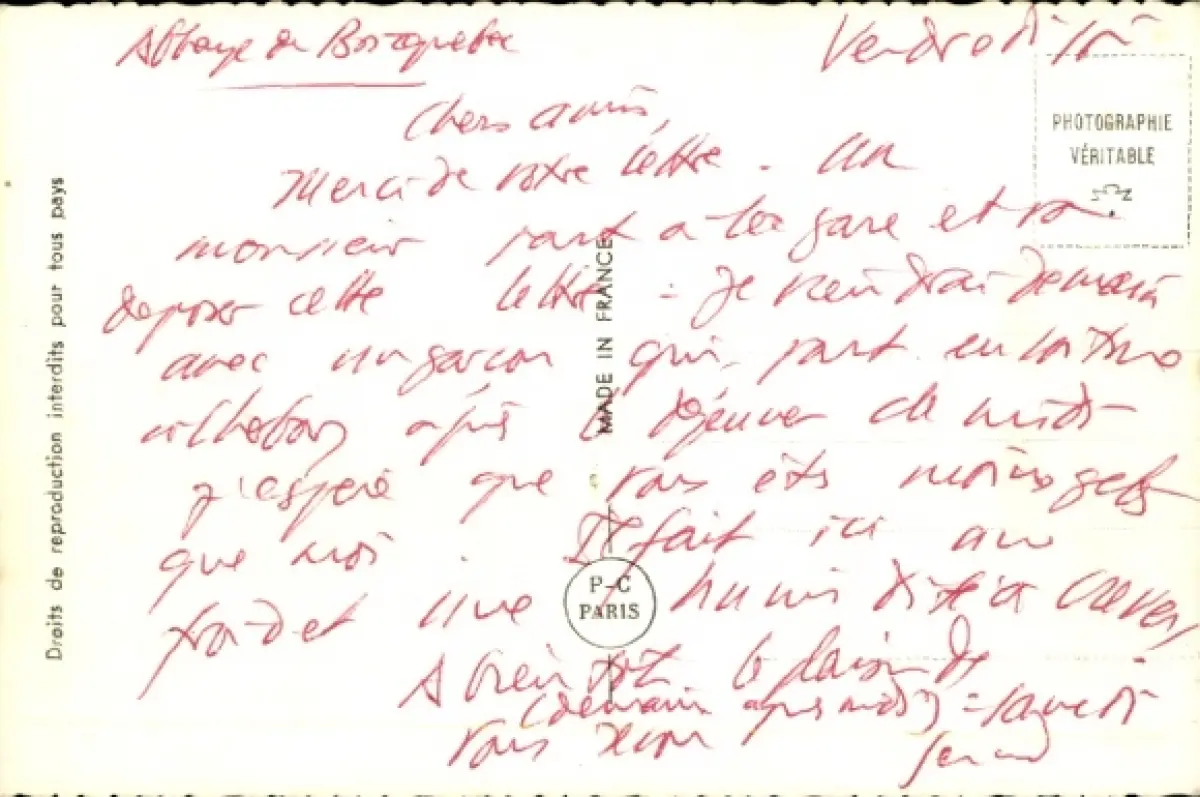 Abbaye de Bricquebec
Vendredi 15
Chers amis,
Merci de votre lettre. Un
monsieur part à la gare et va
déposer cette lettre - Je viendrai demain
avec un garçon qui part en voiture
à Cherbourg après le déjeuner de midi
J'espère que vous êtes moins gelés
que moi. Il fait ici un
froid et une humidité à crever,
A bientôt le plaisir de
(demain après midi) = samedi
vous revoir
PHOTOGRAPHIE
VÉRITABLE
Droits de reproduction interdits pour tous pays
MADE IN FRANCE
P-C
PARIS